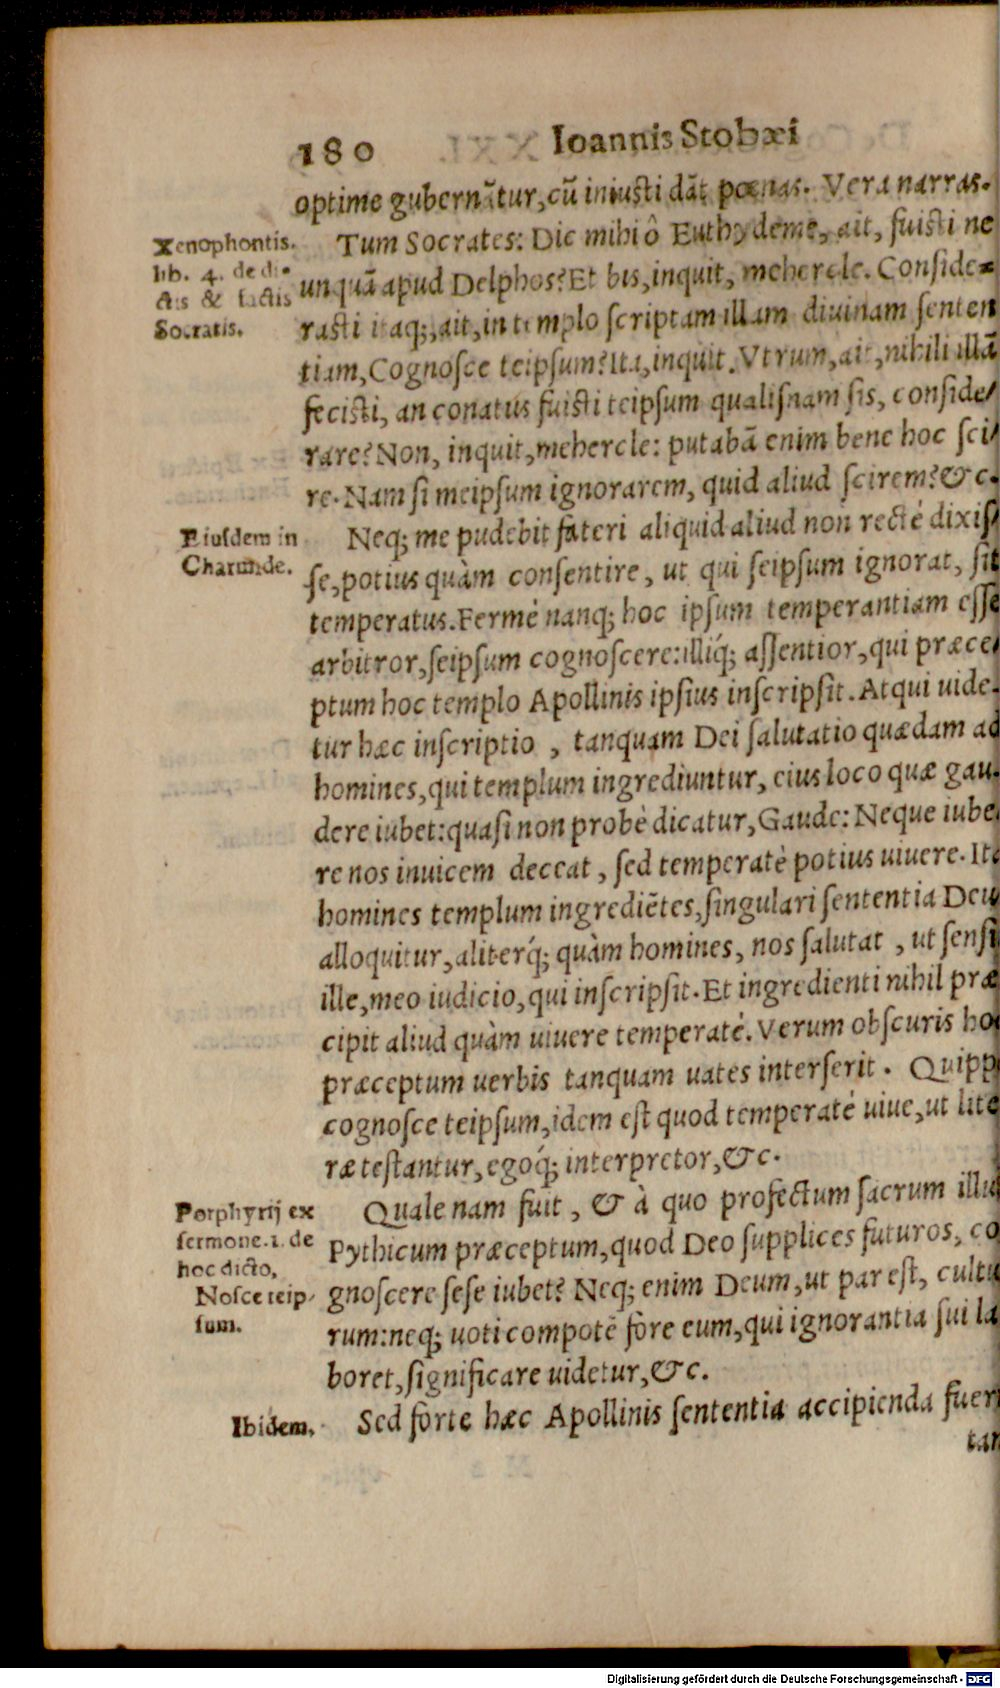 180 Ioannis Stobæi
optime gubernãtur, cũ iniusti dãt pœnas. Vera narras.
Xenophontis.
lib. 4. de di-
ctis & factis
Socratis.
Tum Socrates: Dic mihi ô Euthydeme, ait, fuisti ne
unquã apud Delphos? Et bis, inquit, mehercle. Conside-
rasti itaq;, ait, in templo scriptam illam diuinam senten
tiam, Cognosce teipsum? Ita, inquit. Vtrum, ait, nihili illã
fecisti, an conatus fuisti teipsum qualisnam sis, conside/
rare? Non, inquit, mehercle: putabã enim bene hoc sci/
re. Nam si meipsum ignorarem, quid aliud scirem? &c.
Eiusdem in
Charmide.
Neq; me pudebit fateri aliquid aliud non rectè dixis/
se, potius quàm consentire, ut qui seipsum ignorat, sit
temperatus. Fermè nanq; hoc ipsum temperantiam esse
arbitror, seipsum cognoscere: illiq́; assentior, qui præce/
ptum hoc templo Apollinis ipsius inscripsit. Atqui uide-
tur hæc inscriptio , tanquam Dei salutatio quædam ad
homines, qui templum ingrediuntur, eius loco quæ gau-
dere iubet: quasi non probè dicatur, Gaude: Neque iube
re nos inuicem deceat , sed temperatè potius uiuere. Ita
homines templum ingrediẽtes, singulari sententia Deu
alloquitur, aliterq́; quàm homines, nos salutat , ut sensi
ille, meo iudicio, qui inscripsit. Et ingredienti nihil præ
cipit aliud quàm uiuere temperatè. Verum obscuris ho
præceptum uerbis tanquam uates interserit. Quipp
cognosce teipsum, idem est quod temperatè uiue, ut lite
ræ testantur, egoq́; interpretor, &c.
Porphyrij ex
sermone. 1. de
hoc dicto,
Nosce teip/
sum.
Quale nam fuit , & à quo profectum sacrum illu
Pythicum præceptum, quod Deo supplices futuros, co
gnoscere sese iubet? Neq; enim Deum, ut par est, cultu
rum: neq; uoti compotẽ fore eum, qui ignorantia sui la
boret, significare uidetur, &c.
Ibidem.
Sed forte hæc Apollinis sententia accipienda fueri
tan
Digitalisierung gefördert durch die Deutsche Forschungsgemeinschaft - DFG